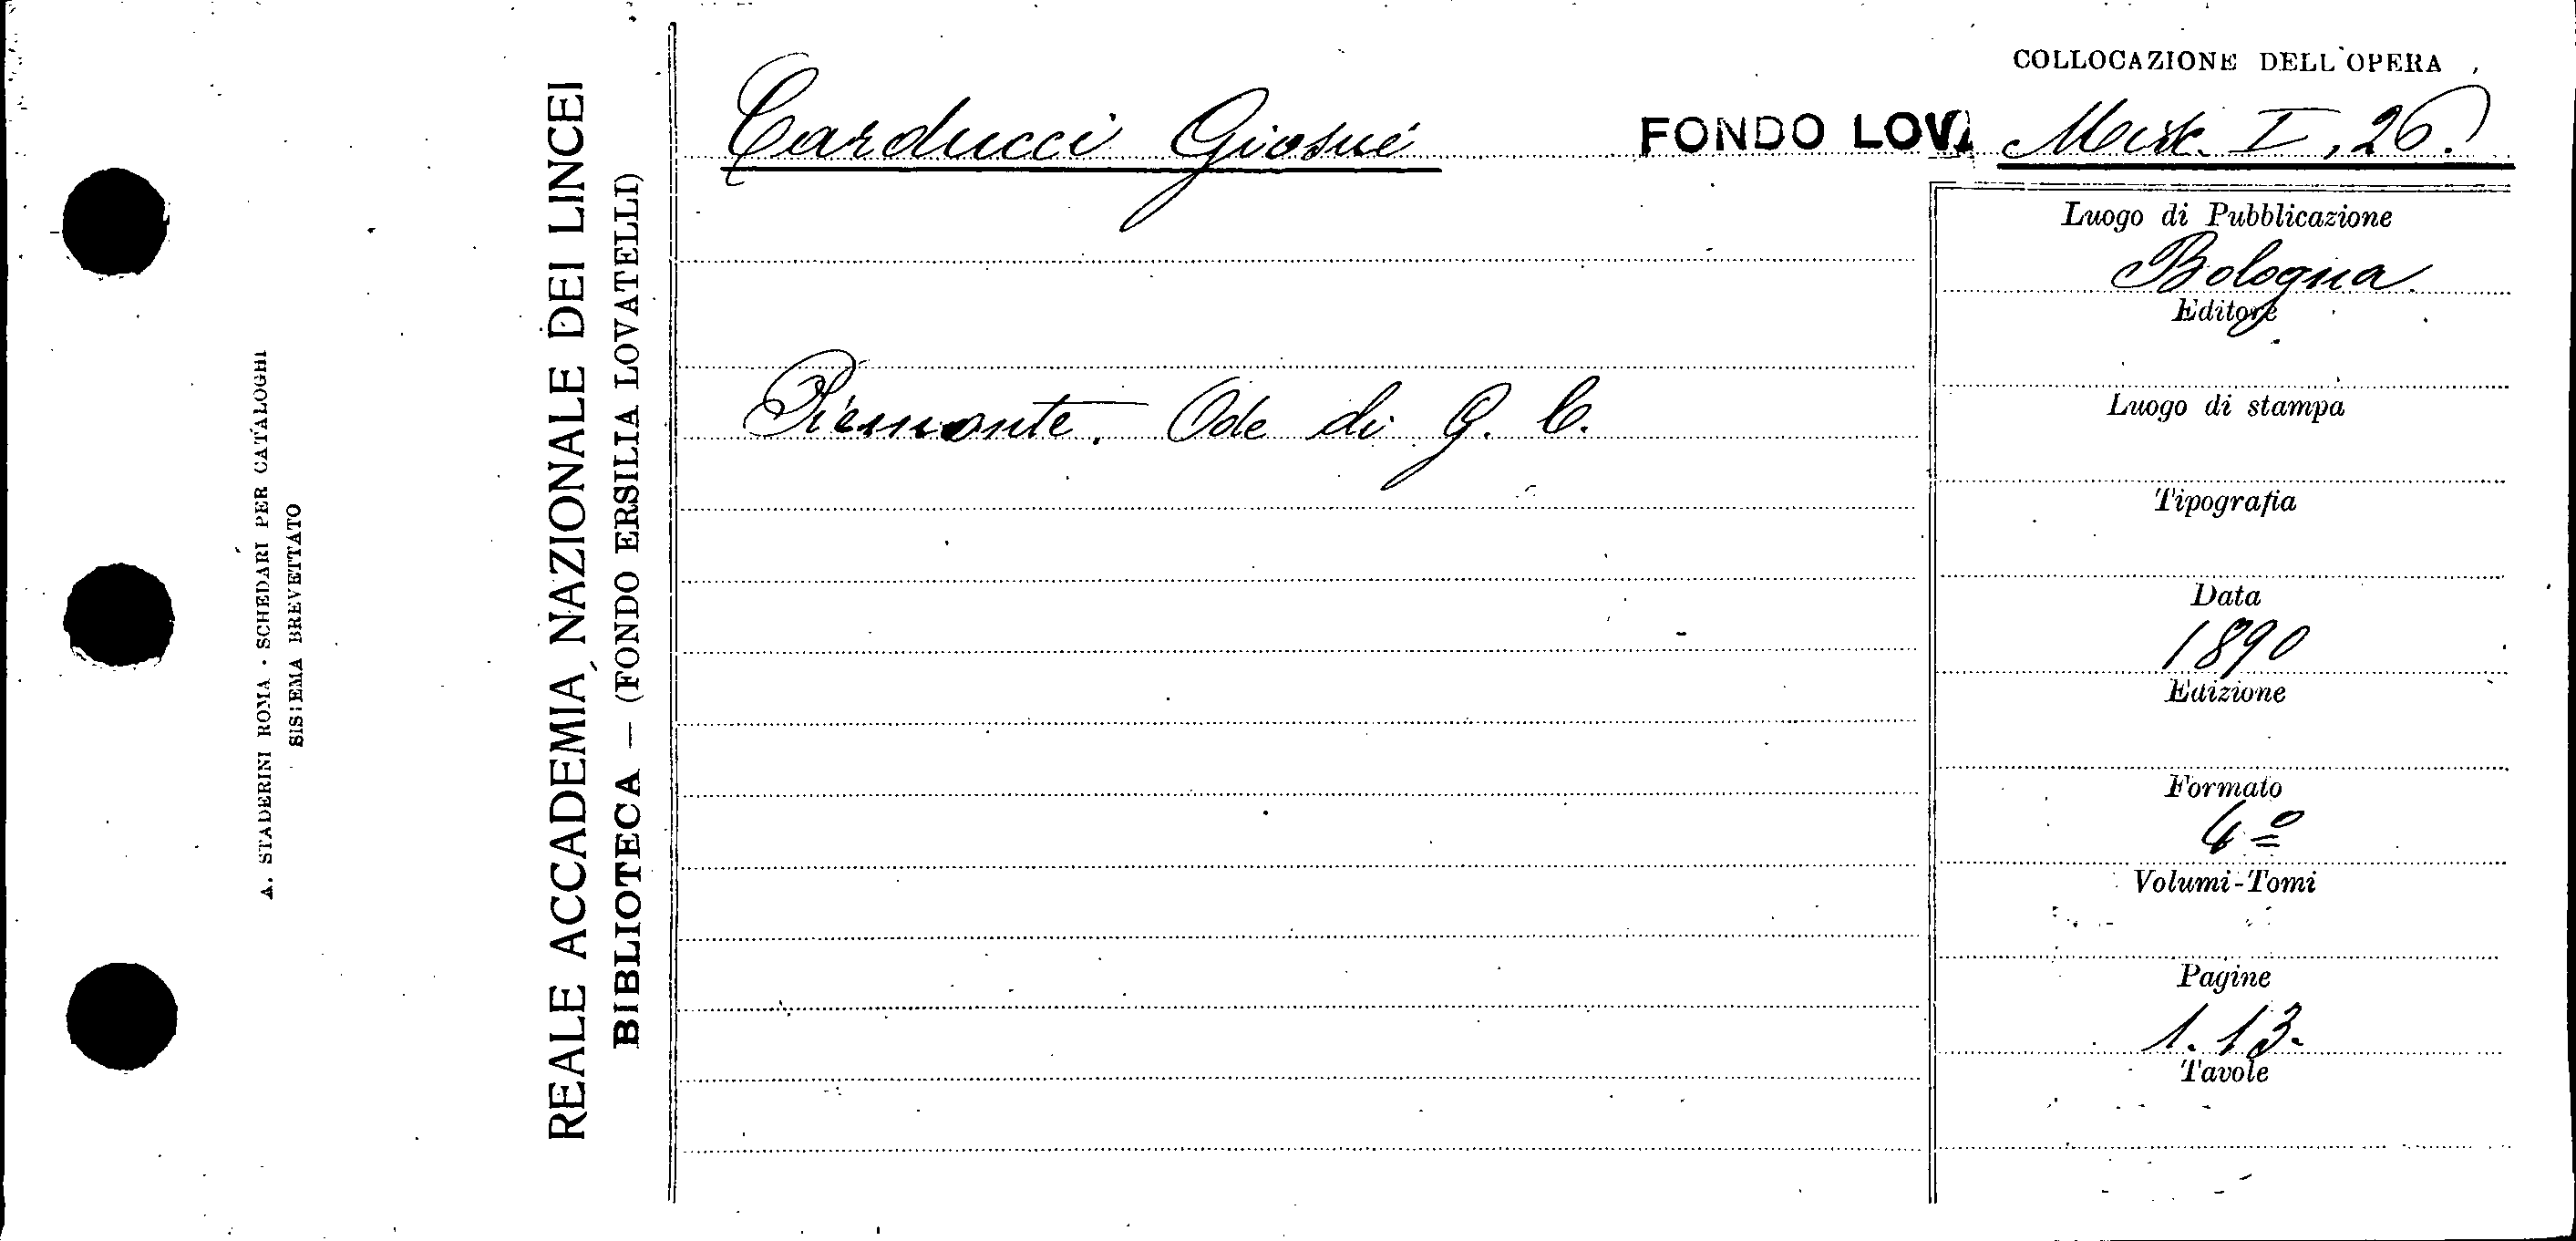 A. STADERINI ROMA · SCHEDARI PER CATALOGHI
SISTEMA BREVETTATO
REALE ACCADEMIA NAZIONALE DEI LINCEI
BIBLIOTECA — (FONDO ERSILIA LOVATELLI)
Carducci Giosuè
FONDO LOVA
COLLOCAZIONE DELL'OPERA
Misc. I, 26.
Piemonte. Ode di G. C.
Luogo di Pubblicazione
Bologna.
Editore
Luogo di stampa
Tipografia
Data
1890
Edizione
Formato
4º
Volumi-Tomi
Pagine
1.13.
Tavole